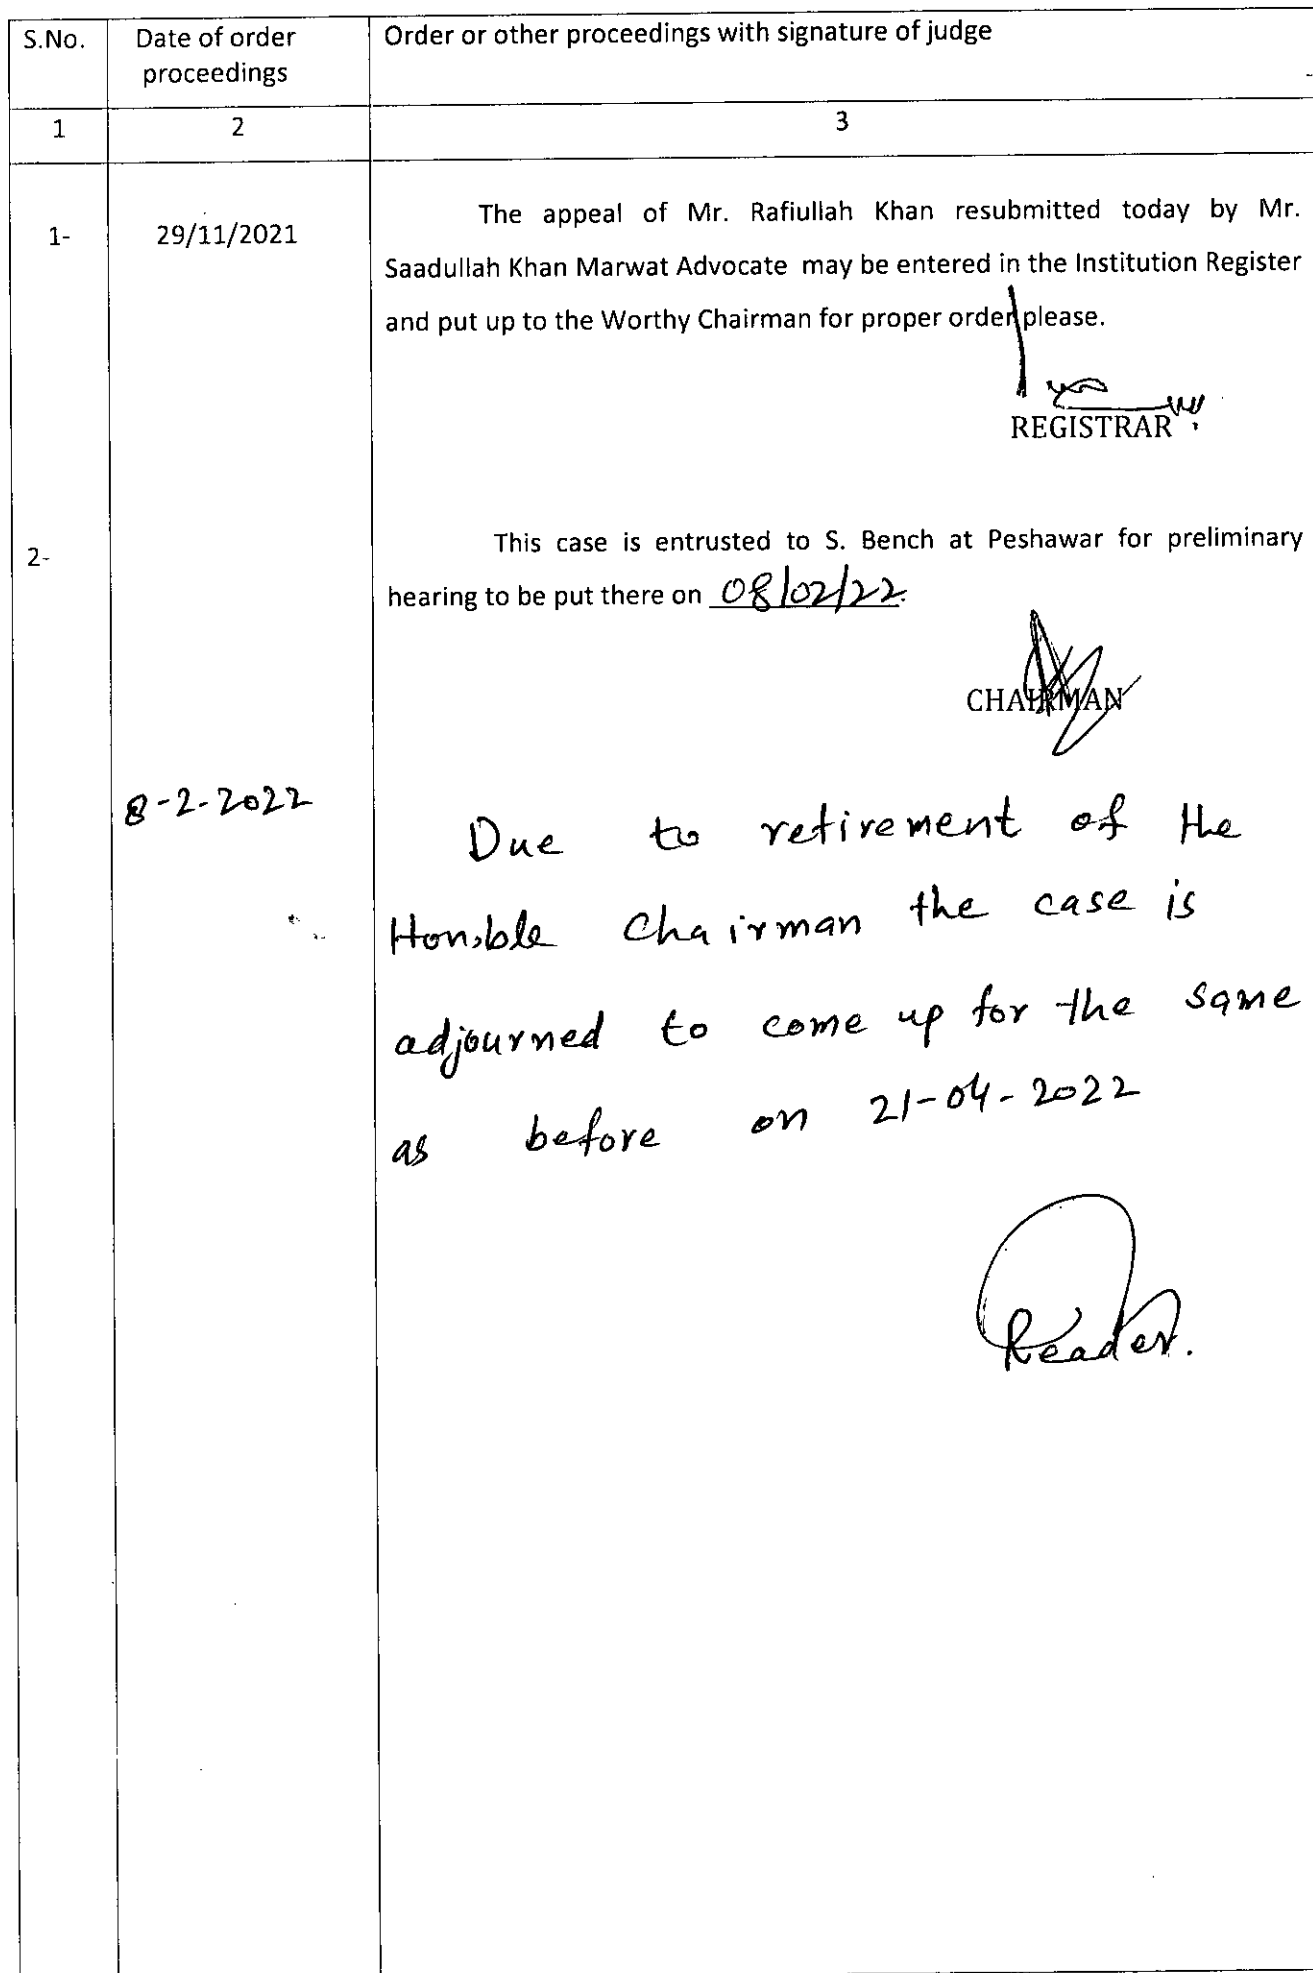 S.No. Date of order Order or other proceedings with signature of judge
proceedings
1 2 3
1- 29/11/2021 The appeal of Mr. Rafiullah Khan resubmitted today by Mr.
Saadullah Khan Marwat Advocate may be entered in the Institution Register
and put up to the Worthy Chairman for proper order please.
REGISTRAR
2- This case is entrusted to S. Bench at Peshawar for preliminary
hearing to be put there on 08/02/22.
CHAIRMAN
8-2-2022 Due to retirement of the
Hon,ble Chairman the case is
adjourned to come up for the same
as before on 21-04-2022
Reader.